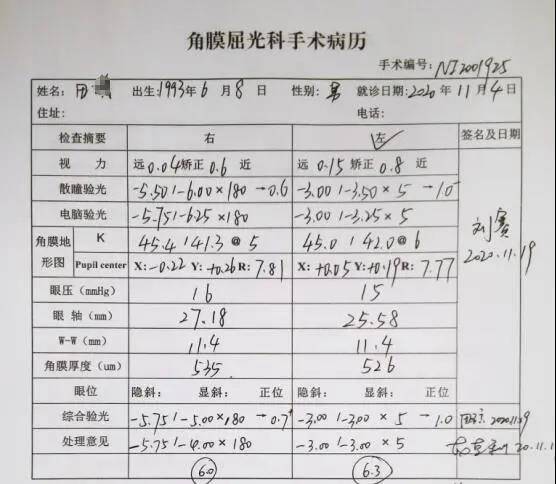 角膜屈光科手术病历
手术编号: NJ2001925
姓名: 田 出生: 1993年 6 月 8 日 性别: 男 就诊日期: 2020 年 11 月 4 日
住址: 电话:
检查摘要 右 左 签名及日期
视 力 远 0.04 矫正 0.6 近 远 0.15 矫正 0.8 近
散瞳验光 -5.50/-6.00×180→0.6 -3.00/-3.50×5→1.0
电脑验光 -5.75/-6.25×180 -3.00/-3.25×5
角膜地形图 K 45.4/41.3@5 45.0/42.0@6
Pupil center X: -0.22 Y: +0.26 R: 7.81 X: +0.05 Y: +0.19 R: 7.77
2020.11.19
眼压(mmHg) 16 15
眼 轴(mm) 27.18 25.58
W-W(mm) 11.4 11.4
角膜厚度(um) 535 526
眼位 隐斜: 显斜: 正位 隐斜: 显斜: 正位
综合验光 -5.75/-5.00×180→0.7⁺ -3.00/-3.00×5→1.0 2020.11.19
处理意见 -5.75/-4.00×180 -3.00/-3.00×5 20.11.1
6.0 6.3